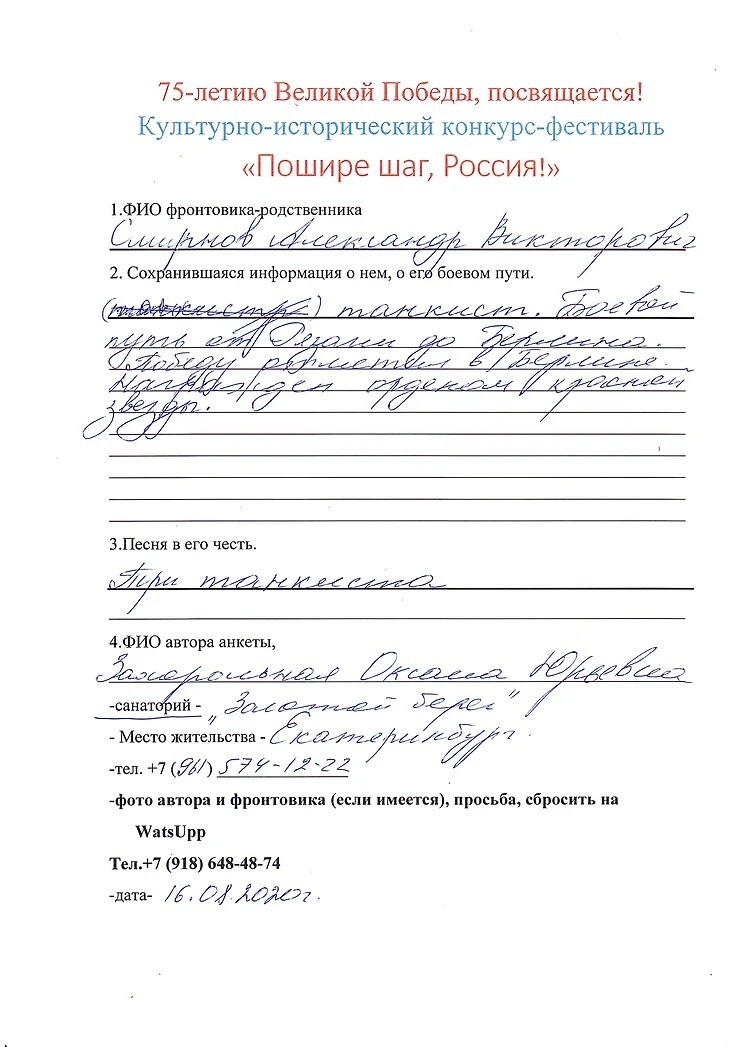 75-летию Великой Победы, посвящается!
Культурно-исторический конкурс-фестиваль
«Пошире шаг, Россия!»
1.ФИО фронтовика-родственника
Смирнов Александр Викторович
2. Сохранившаяся информация о нем, о его боевом пути.
танкист. Боевой
путь от Рязани до Берлина.
Победу встретил в Берлине.
Награжден орденом красной
звезды.
3.Песня в его честь.
Три танкиста
4.ФИО автора анкеты,
Оксана Юрьевна
-санаторий - „Золотой берег"
- Место жительства - Екатеринбург.
-тел. +7 (961) 574-12-22
-фото автора и фронтовика (если имеется), просьба, сбросить на
WatsUpp
Тел.+7 (918) 648-48-74
-дата- 16.08.2020г.